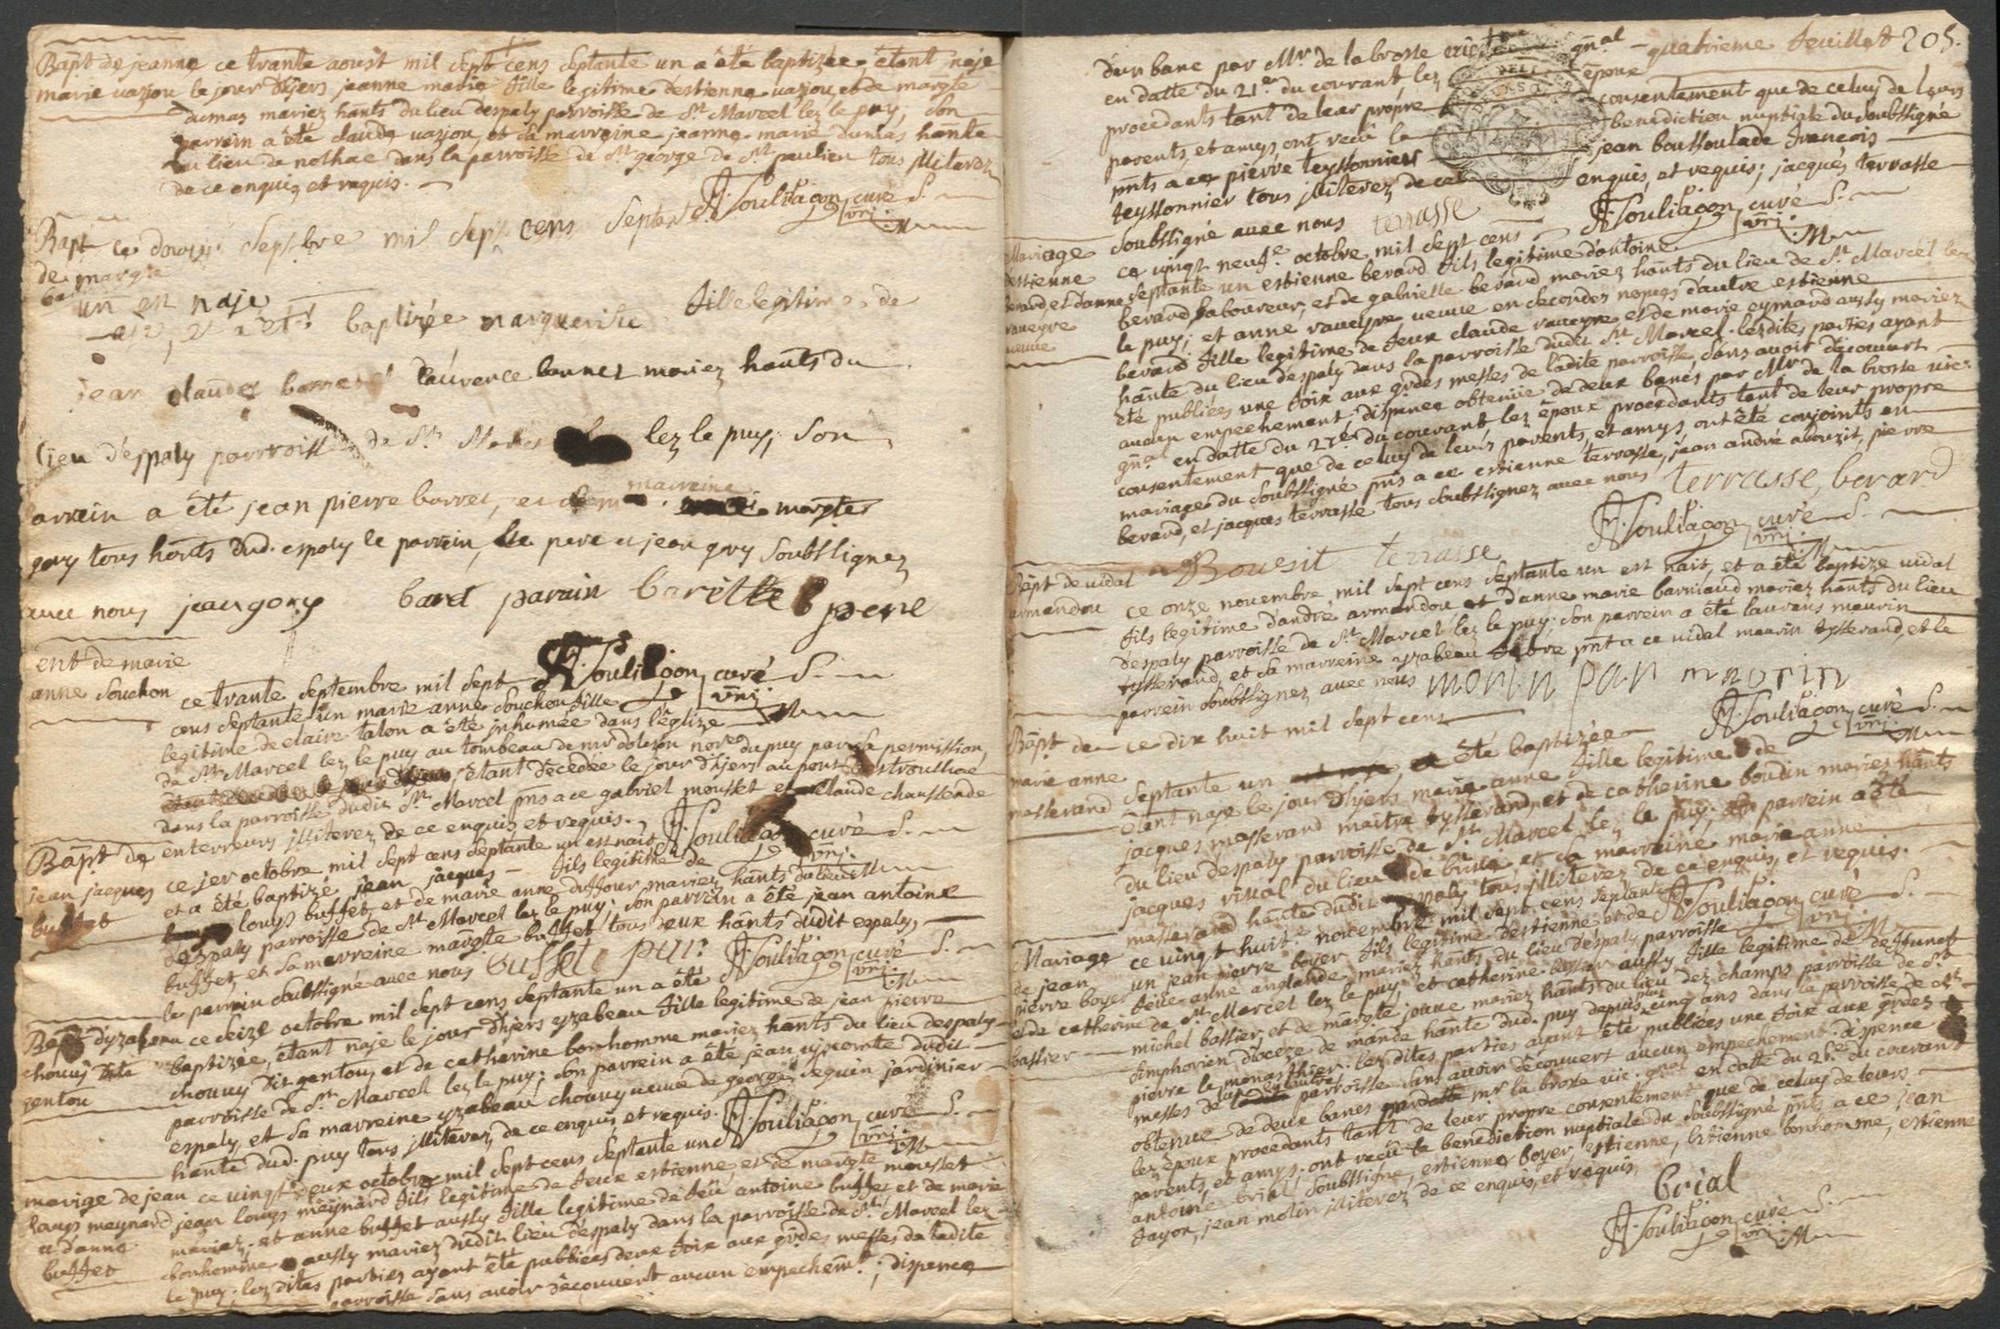 Bapt de jeanne
marie vazou
ce trante aoust mil sept cens septante un a été baptizée, étant naje
le jour d'hjers jeanne marie fille legitime d'estienne vazou, et de margte
dumas mariez hants du lieu despaly parroisse de St Marcel lez le puy, son
parrein a été claude vazou, et sa marreine jeanne marie dumas hante
du lieu de nolhac dans la parroisse de St george de St paulien tous illiterez
de ce enquis et requis.
Souliagon curé S.
vri.
Bapt
de margte
ce douze septbre mil sept cens septante
un est naje
et a été baptizée marguerite fille legitime de
jean claude barret laurence bonnet mariez hants du
lieu d'espaly parroisse de St Marcel lez le puy; son
parrein a été jean pierre barret, et sa marreine margte
gory tous hants dud. espaly le parrein, le pere et jean gory soubssignez
avec nous jean gory baret parain barette pere
Souliagon curé S.
vri.
ent de marie
anne souchon
ce trante septembre mil sept
cens septante un marie anne souchon fille
legitime de claire talon a été inhumée dans l'église
de St Marcel lez le puy au tombeau de mr doleson nore du puy par sa permission,
étant décédée le jour d'hjers au pont destroulhac
dans la parroisse dudit St Marcel pnts a ce gabriel mousset et claude chaussende
enterreurs illiterez de ce enquis et requis.
Souliagon curé S.
vri.
Bapt de
jean jacques
buffet
ce 1er octobre mil sept cens septante un est nait
et a été baptizé jean jacques fils legitime de
louys buffet, et de marie anne duffour mariez hants du lieu
despaly parroisse de St Marcel lez le puy; son parrein a été jean antoine
buffet, et sa marreine margte buffet tous deux hants dudit espaly,
le parrein soubssigné avec nous bussete par:
Souliagon curé S.
vri.
Bapt d'yzabeau
chouvy dite
gentou
ce seize octobre mil sept cens septante un a été
baptizée, étant naje le jour d'hjers yzabeau fille legitime de jean pierre
chouvy dit gentou, et de catherine bonhomme mariez hants du lieu despaly
parroisse de St Marcel lez le puy; son parrein a été jean vjscomte dudit
espaly, et sa marreine yzabeau chouvy veuve de george seguin jardinier
hante dud. puy tous illiterez de ce enquis et requis.
Souliagon curé S.
vri.
marige de jean
louys meynard
et d'anne
buffet
ce vingt deux octobre mil sept cens septante un
jean louys meynard fils legitime de feux estienne et de margte mousset
mariez; et anne buffet aussy fille legitime de feu antoine buffet et de marie
bonhomme aussy mariez dudit lieu despaly dans la parroisse de St Marcel lez
le puy. lesdites parties ayant été publiées deux fois aux grdes messes de ladite
parroisse sans avoir découvert aucun empechemt; dispence
quatrieme feuillet 205.
d'un banc par Mr de la brosse vic gnal
en datte du 21e du courant les époux
procedants tant de leur propre consentement que de celuy de leurs
parents, et amys ont reçû la benediction nuptiale du soubssigné
pnts a ce pierre teyssonnier jean boussoulade francois
teyssonnier tous illiterez de ce enquis, et requis; jacques terrasse
soubssigné avec nous terrasse
Souliagon curé S.
vri.
Mariage
destienne
berard, et d'anne
vaucyre
veuve
ce vingt neufe octobre mil sept cens
septante un estienne berard fils legitime d'antoine
berard laboureur, et de gabrielle berard mariez hants du lieu de St Marcel lez
le puy; et anne vaucyre veuve en secondes nopces d'autre estienne
berard fille legitime de feux claude vaucyre et de marie eymard aussy mariez
hante du lieu despaly dans la parroisse dudit St Marcel. lesdites parties ayant
été publiées une fois aux grdes messes de ladite parroisse, sans avoir découvert
aucun empechement; dispence obtenue de deux bancs par Mr de la brosse vic:
gnal en datte du 27e du courant les époux procedants tant de leur propre
consentement que de celuy de leurs parents, et amys ont été conjoints en
mariage du soubssigné pnts a ce estienne terrasse, jean andré abouzit, pierre
berard, et jacques terrasse tous soubssignez avec nous terrasse, berard
Bouzit terrasse
Souliagon curé S.
vri.
Bapt de vidal
armandou
ce onze novembre mil sept cens septante un est nait, et a été baptizé vidal
fils legitime d'andré armandou et d'anne marie barniaud mariez hants du lieu
despaly parroisse de St Marcel lez le puy. son parrein a été laurans maurin
tysserand, et sa marreine yzabeau fabre pnt a ce vidal maurin tysserand, et le
parrein soubssignez avec nous morin par maorin
Souliagon curé S.
vri.
Bapt de
marie anne
masserand
ce dix huit mil sept cens
septante un a été baptizée
étant naje le jour d'hjers marie anne fille legitime de
jacques masserand maitre tysserand, et de catherine boudin mariez hants
du lieu despaly parroisse de St Marcel lez le puy; son parrein a été
jacques rival du lieu de brive et sa marreine marie anne
masserand hante dudit espaly tous illiterez de ce enquis, et requis.
Souliagon curé S.
vri.
Mariage
de jean
pierre boyer
et de catherine
bastier
ce vingt huite novembre mil sept cens septante
un jean pierre boyer fils legitime destienne, et de
feue anne anglade mariez hants du lieu despaly parroisse
de St Marcel lez le puy; et catherine bastier aussy fille legitime de deffunct
michel bastier, et de margte joune mariez hants du lieu dez champs parroisse de St
simphorien dioceze de mande hante dud. puy depuis plus cinq ans dans la parroisse de St
pierre le monasthier. lesdites parties ayant été publiées une fois aux grdes
messes de l'une et l'autre parroisse sans avoir découvert aucun empechement; dispence
obtenue de deux bancs par mr la brosse vic. gnal en datte du 26e du courant
les époux procedants tant de leur propre consentement que de celuy de leurs
parents, et amys. ont reçû la benediction nuptiale du soubssigné pnts a ce jean
antoine brial soubssigné, estienne boyer, estienne bonhomme, estienne
fayon, jean molin illiterez de ce enquis, et requis.
brial
Souliagon curé S.
vri.